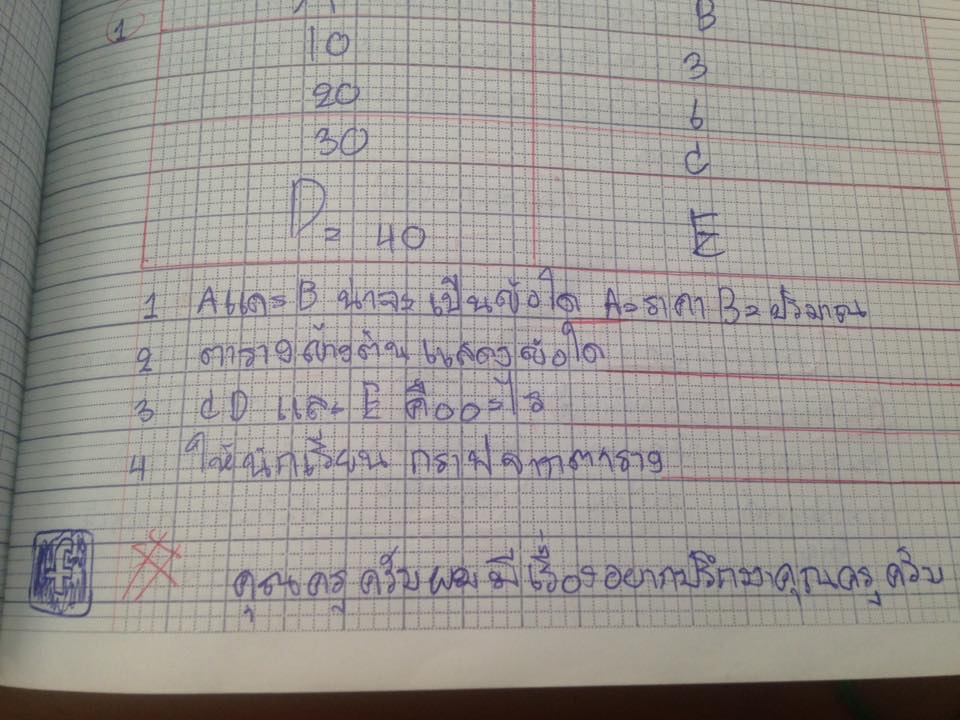 1 A B
10 3
20 6
30 C
D = 40 E
1 Aและ B น่าจะเป็นข้อใด A=ราคา B=ปริมาณ
2 ตารางข้างต้นแสดงข้อใด
3 C D และ E คืออะไร
4 ให้นักเรียน กราฟจากตาราง
คุณครู ครับผมมีเรื่องอยากปรึกษาคุณครู ครับ